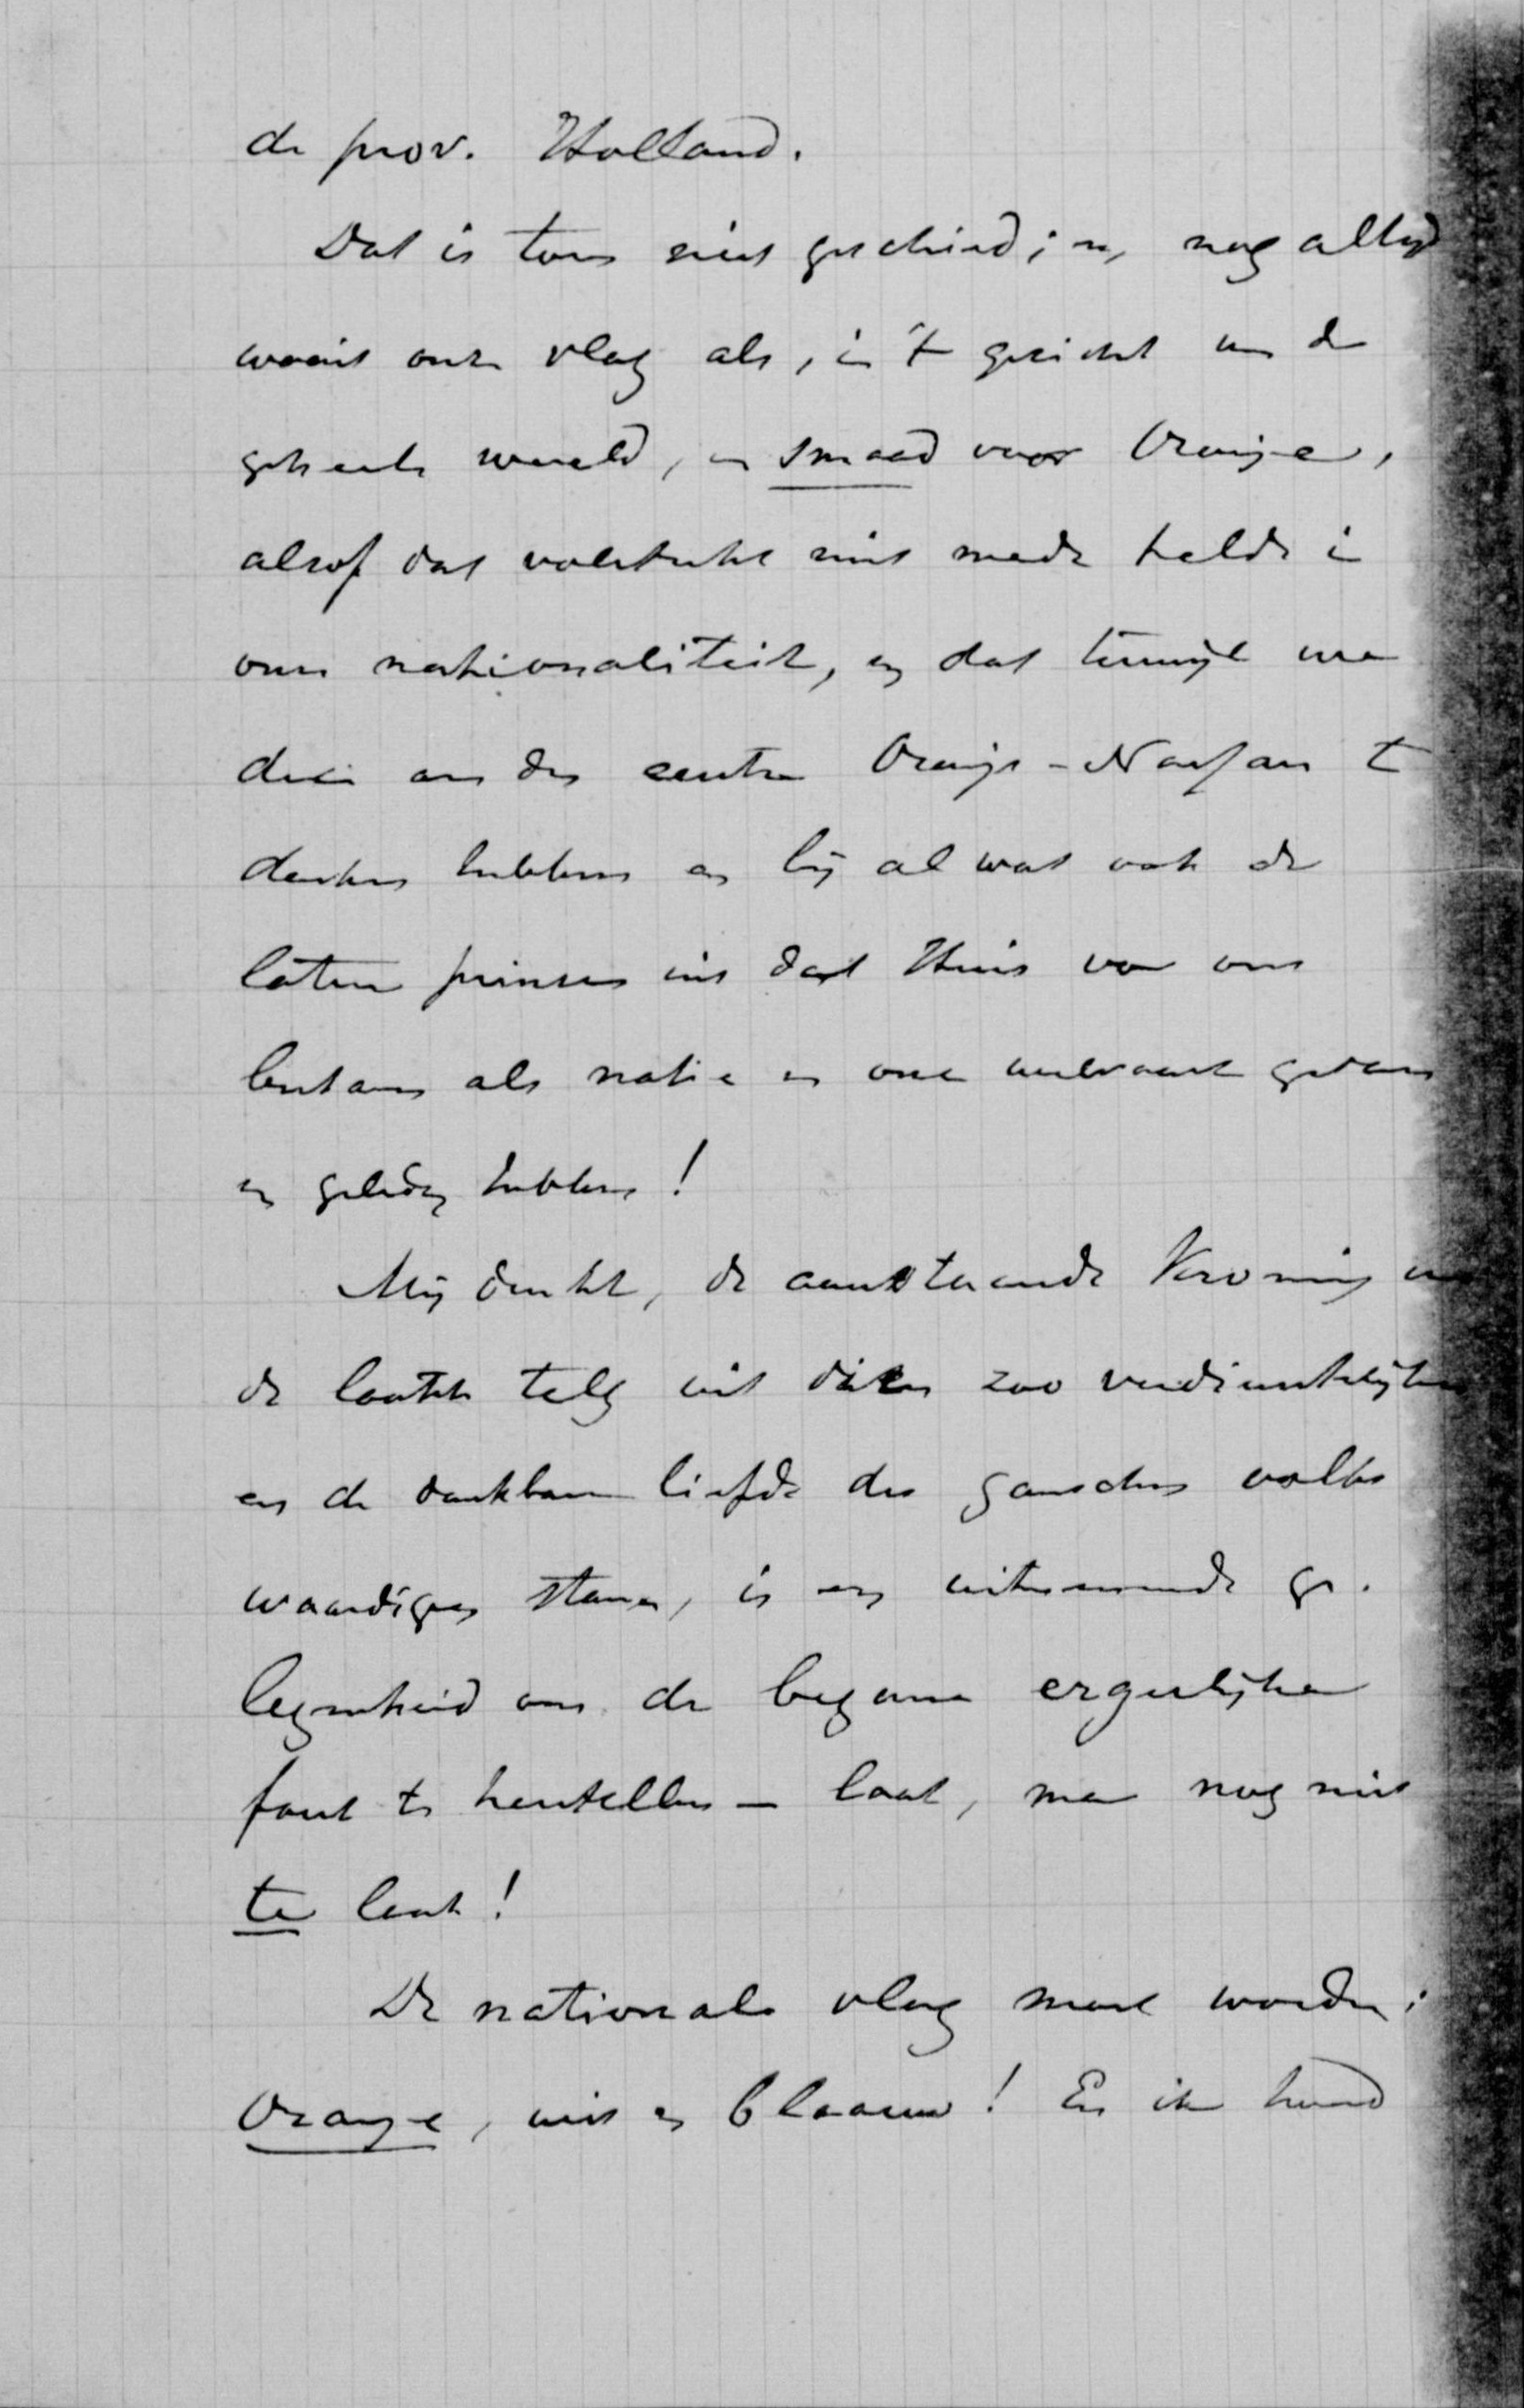 de prov. Holland.
Dat is toen niet geschied; en, nog altijd
waait onze vlag als, in 't gezicht van de
geheele wereld, een smaad voor Oranje,
alsof dat volstrekt niet mede telde in
onze nationaliteit, en dat terwijl we
die aan den eersten Oranje-Nassau te
danken hebben en bij al wat ook de
latere prinsen uit dat Huis voor ons
bestaan als natie en onze welvaart gedaan
en geleden hebben!
Mij dunkt, de aanstaande Kroning van
de laatste telg uit dien zoo verdienstelijken
en de dankbare liefde des ganschen volks
waardigen stam, is een uitnemende ge-
legenheid om de begane ergerlijke
fout te herstellen — laat, maar nog niet
te laat!
De nationale vlag moet worden:
Oranje, wit en blaauw! En ik houd